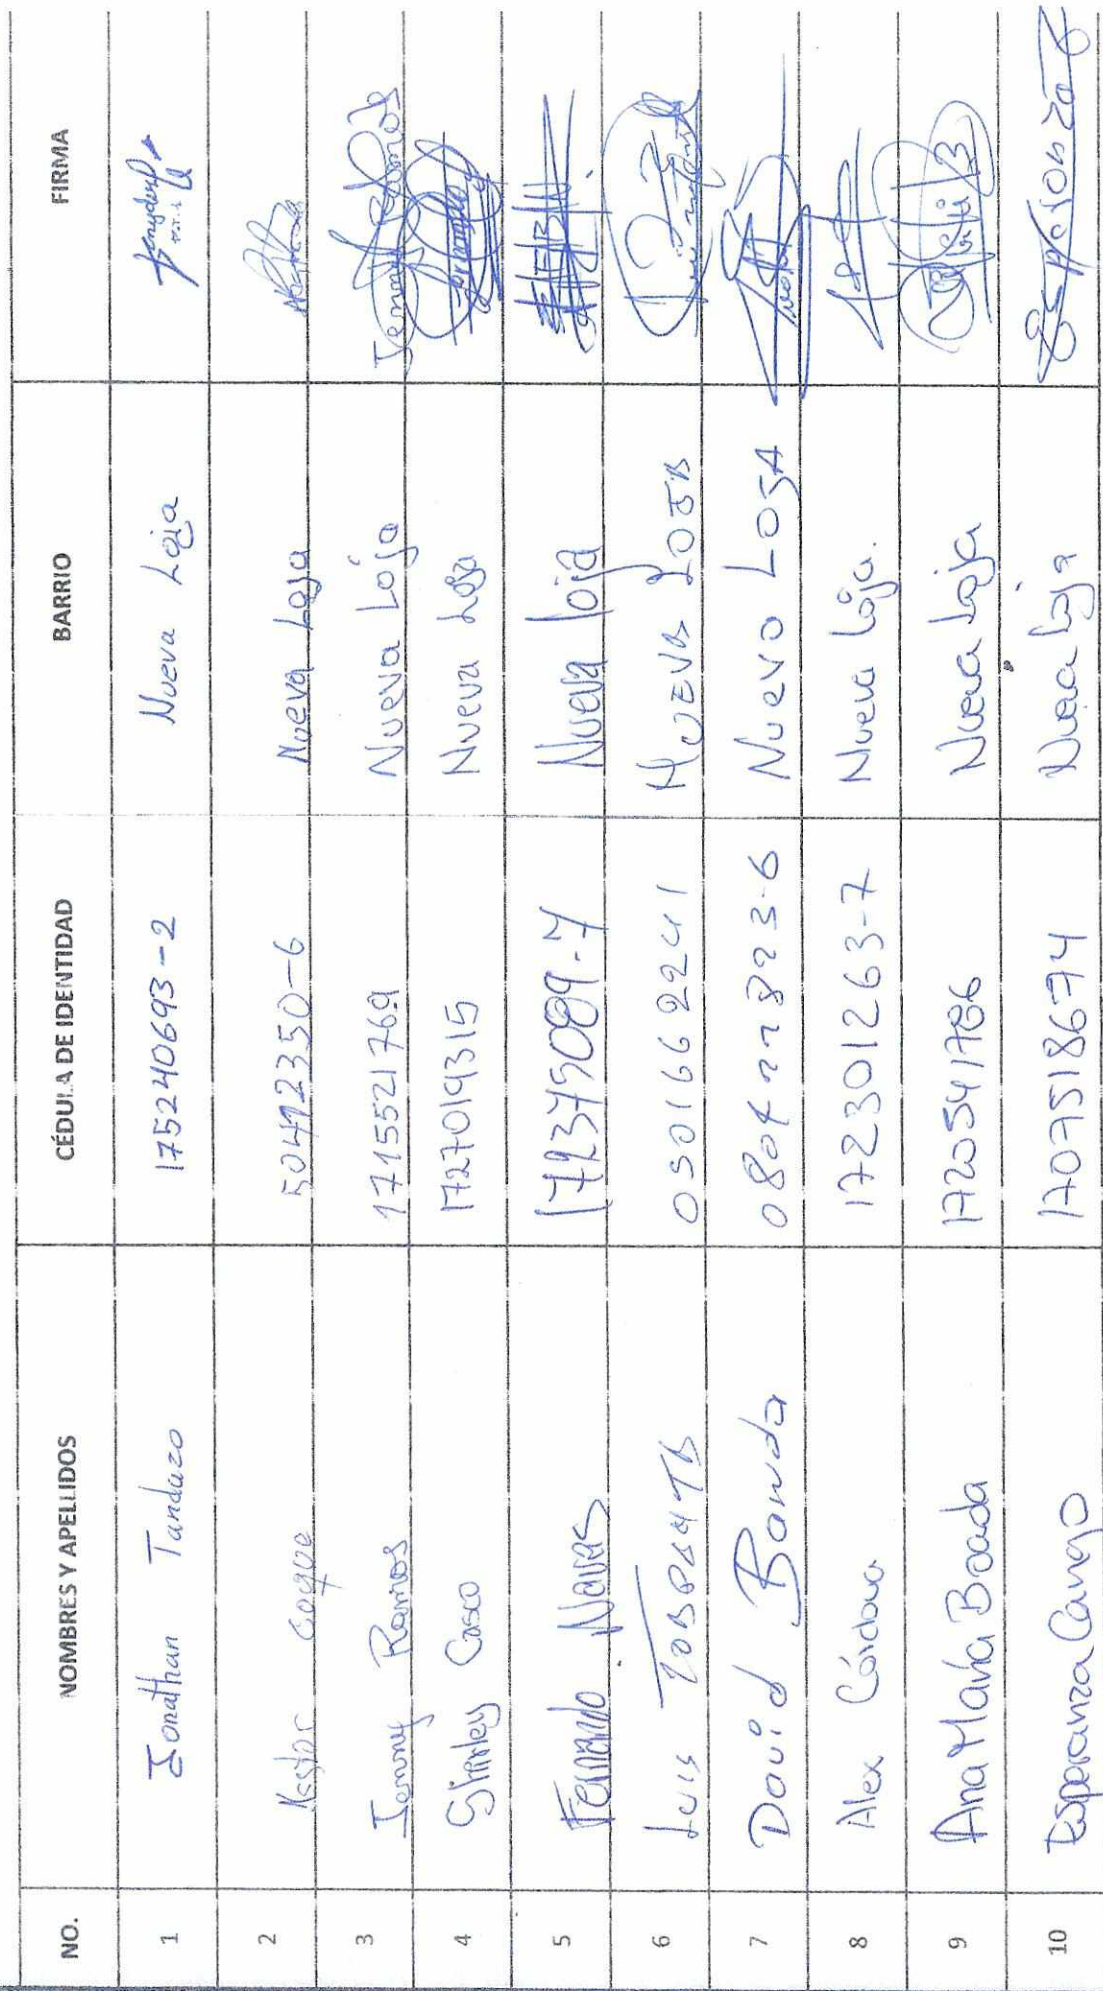 NO. NOMBRES Y APELLIDOS CÉDULA DE IDENTIDAD BARRIO FIRMA
1 Jonathan Tandazo 175240693-2 Nueva Loja
2 Nestor Coque 50412350-6 Nueva Loja
3 Jenny Ramos 171552176-9 Nueva Loja Jenny Ramos
4 Shirley Casco 1727019315 Nueva Loja
5 Fernando Navas 172375089-7 Nueva loja
6 Luis 0501662241 Nueva Loja
7 David Banda Nuevo LOJA
8 Alex Córdova 172301263-7 Nueva Loja.
9 Ana María Boada 1720541786 Nueva Loja
10 Esperanza Cango 1707518674 Nueva Loja